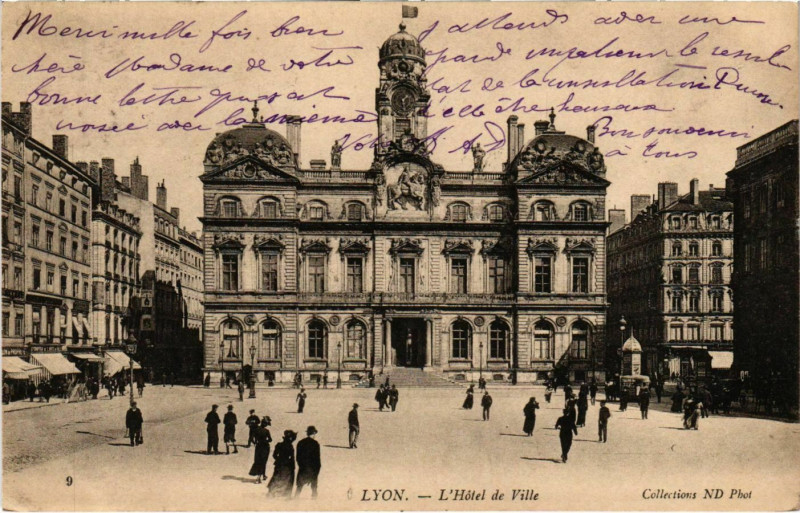 Merci mille fois bien
chère Madame de votre
bonne lettre qui s'est
croisée avec la mienne
J'attends avec une
grande impatience le résul
tat de la consultation Puisse
t'elle être heureuse
Bon souvenir
à tous
9
LYON. — L'Hôtel de Ville
Collections ND Phot